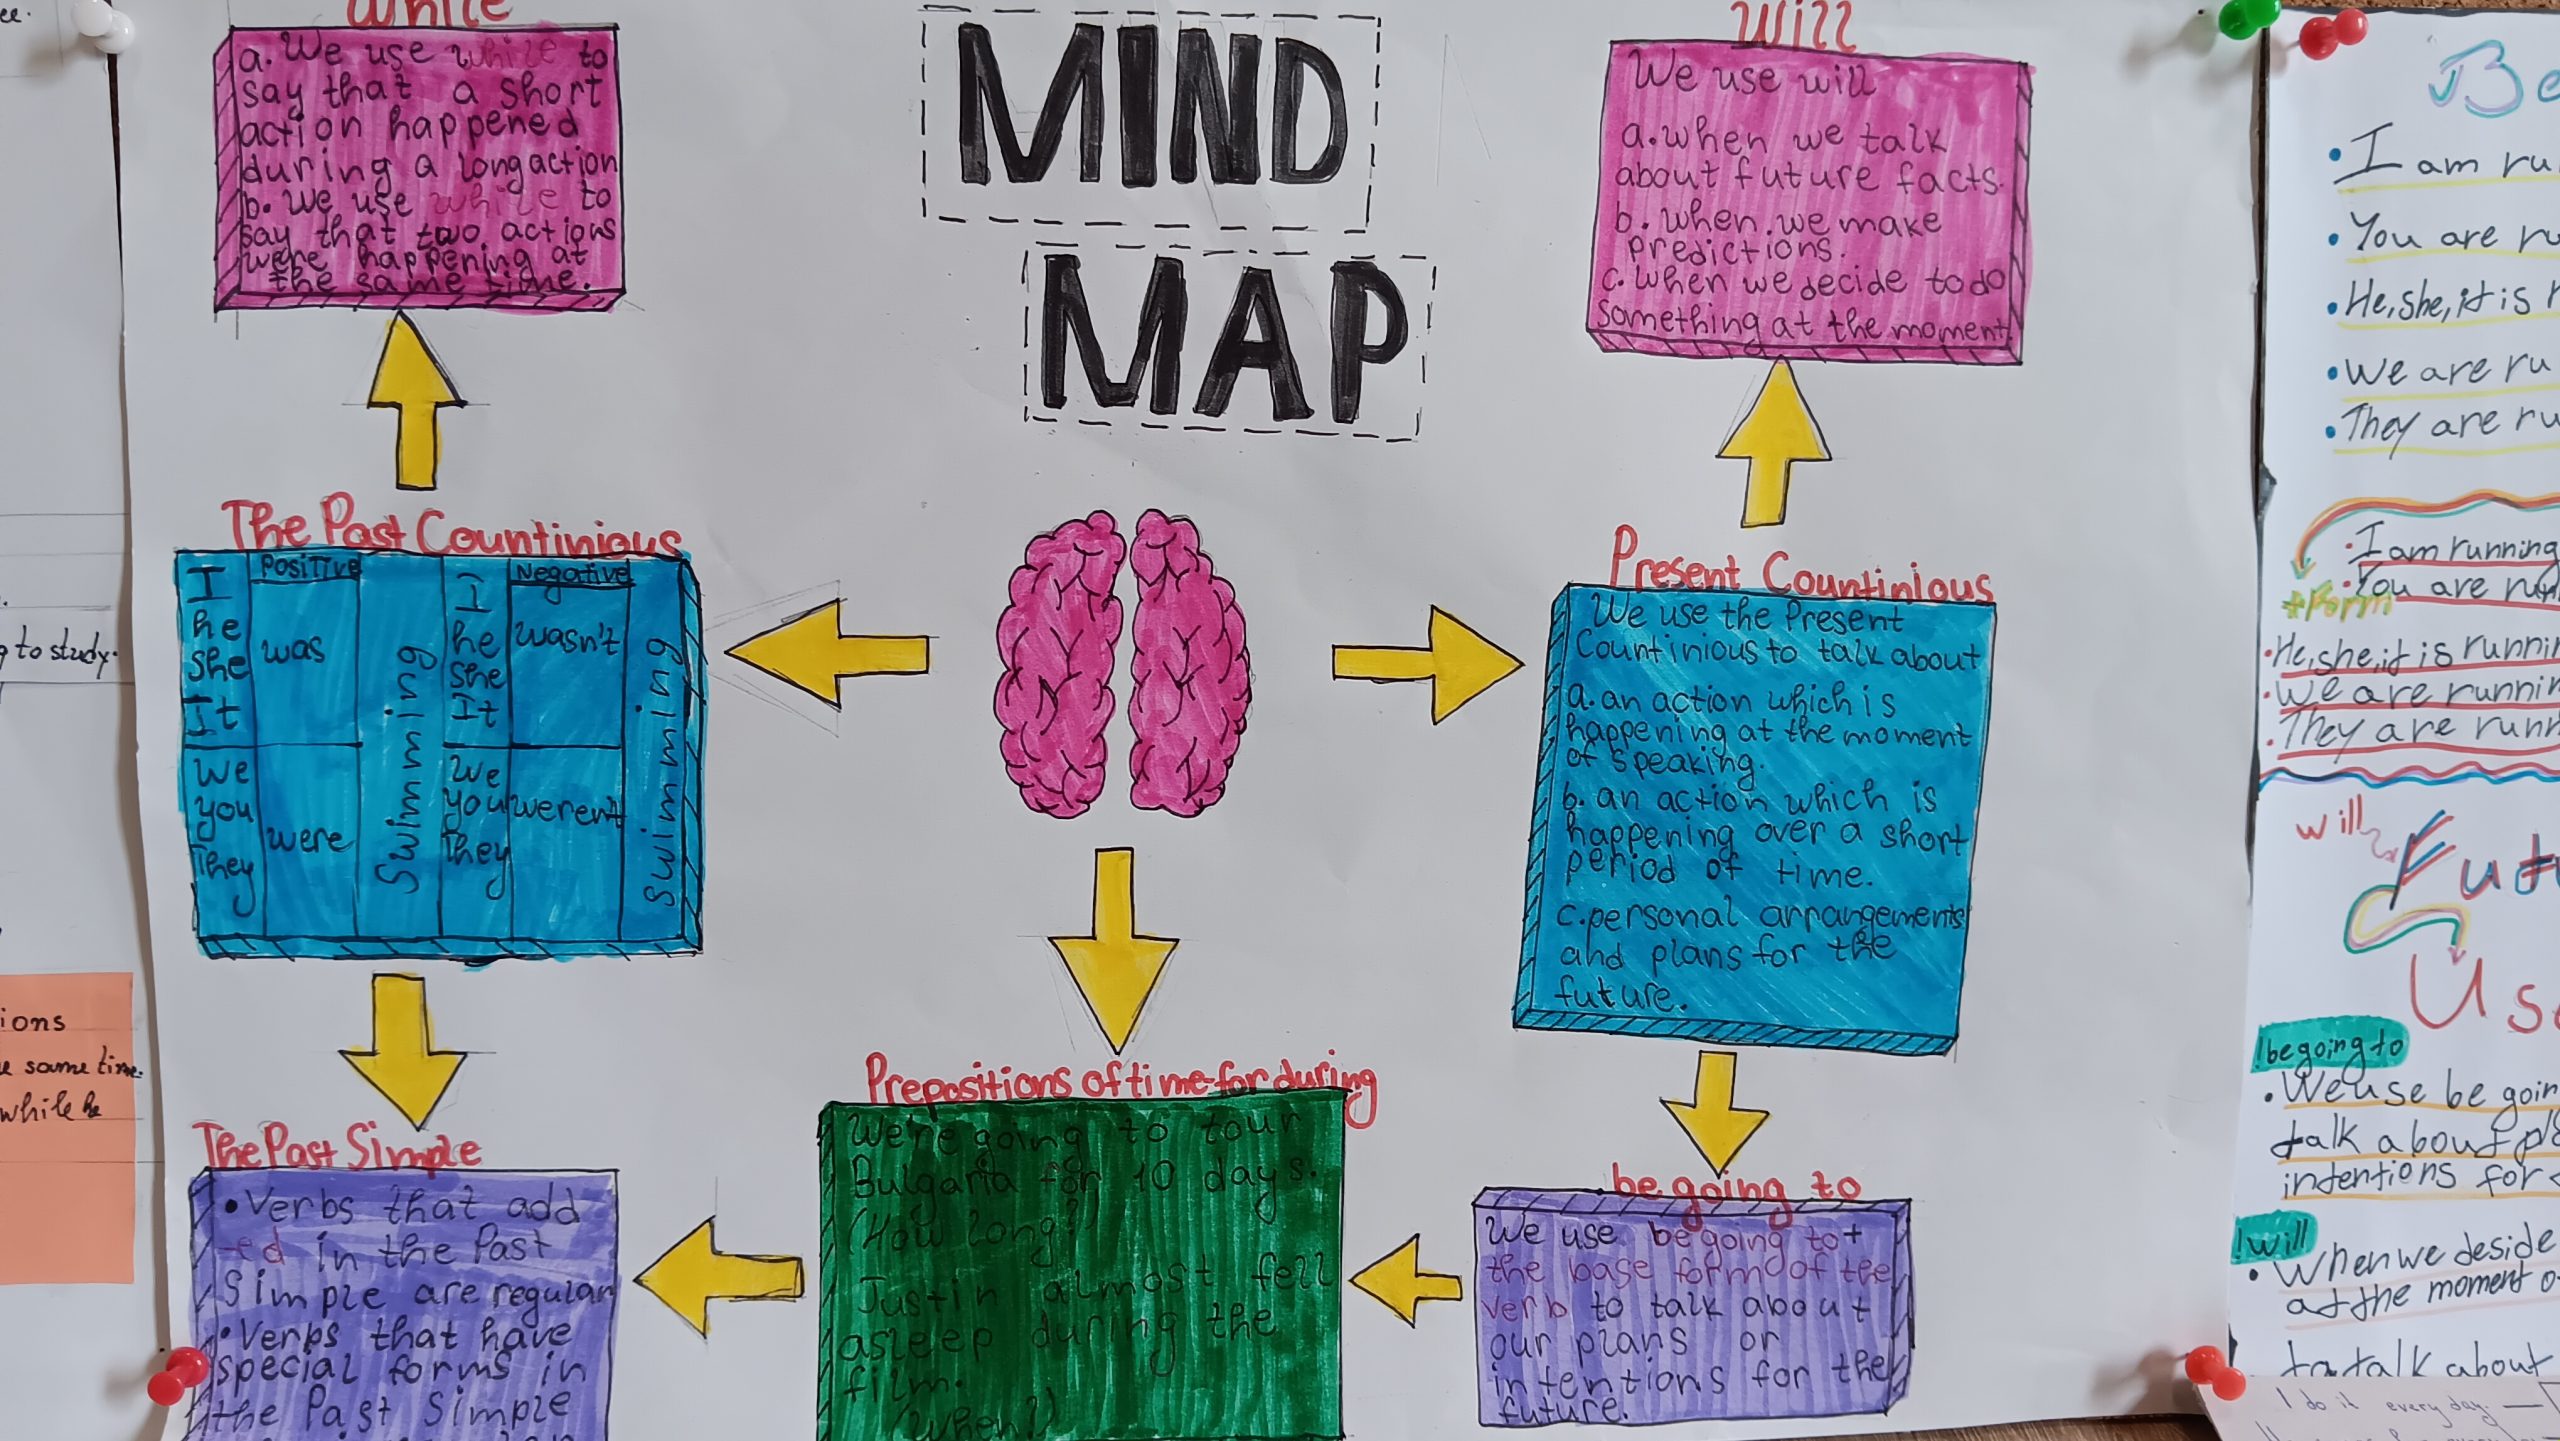 MIND
MAP
While
a. We use while to
say that a short
action happened
during a long action
b. we use while to
say that two actions
were happening at
the same time.
Will
We use will
a. when we talk
about future facts.
b. when we make
predictions.
c. when we decide to do
something at the moment
The Past Countinious
Positive
Negative
I
he
she
It
was
swimming
I
he
she
It
wasn't
swimming
We
you
They
were
We
you
They
weren't
Present Countinious
We use the Present
Countinious to talk about
a. an action which is
happening at the moment
of speaking.
b. an action which is
happening over a short
period of time.
c. personal arrangements
and plans for the
future.
The Past Simple
• Verbs that add
-ed in the Past
Simple are regular
• Verbs that have
special forms in
the Past Simple
Prepositions of time-for during
We're going to tour
Bulgaria for 10 days.
(How long?)
Justin almost fell
asleep during the
film.
(When?)
be going to
We use be going to +
the base form of the
verb to talk about
our plans or
intentions for the
future.
to study.
same time.
while he
• I am
• You are
• He, she, it is
• We are
• They are
• I am running
• You are
+ Form
• He, she, it is
• We are
• They are
will
! be going to
• We use be
talk about
intentions for
! will
• When we deside
at the moment
to talk about
I do it every day.